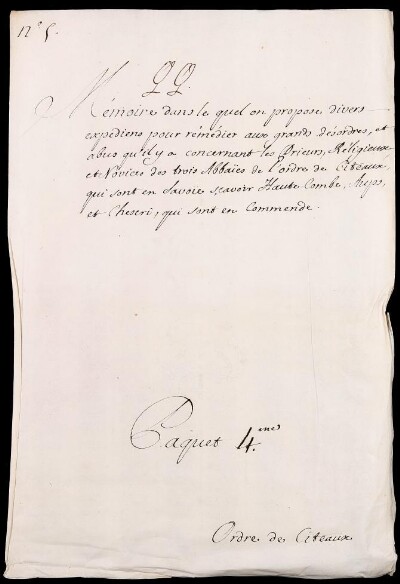 N.º 5.
QQ.
Mémoire dans le quel on propose divers
expédiens pour rémedier aux grands désordres, et
abus qu'il y a concernant les Prieurs, Réligieux
et Novices des trois Abbaïes de l'ordre de Citeaux,
qui sont en Savoie sçavoir Haute Combe,
et Cheseri, qui sont en Commende.
Paquet 4.
Ordre de Citeaux